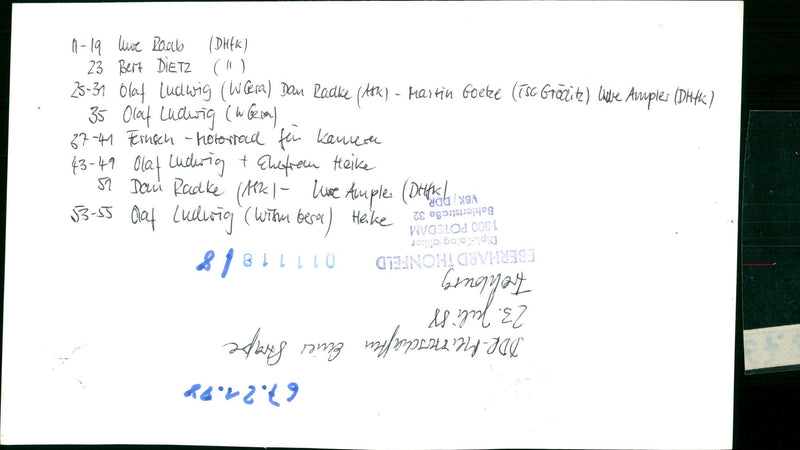 11-19 Uwe Raab (DHfK)
23 Bert DIETZ (")
25-31 Olaf Ludwig (WGera) Dan Radtke (ASK) - Martin Goetze (TSC Gröditz) Uwe Ampler (DHfK)
35 Olaf Ludwig (WGera)
37-41 Fernseh-Motorrad für Kamera
43-49 Olaf Ludwig + Ehefrau Heike
51 Dan Radtke (ASK) - Uwe Ampler (DHfK)
53-55 Olaf Ludwig (Wism Gera) Heike
67.21.98
DDR-Meisterschaften Einer Straße
23. Juli 88
EBERHARD THONFELD
Dipl.-Fotografiker
1500 POTSDAM
32
VBK / DDR
011118/8